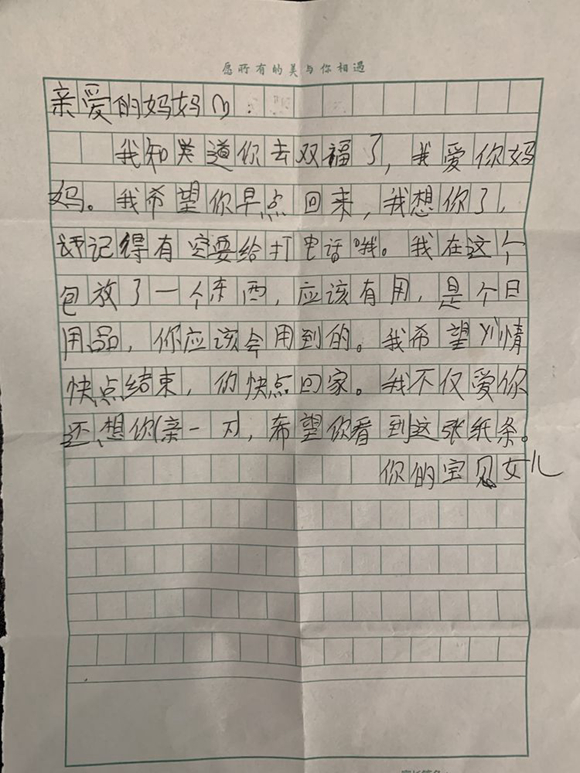 愿所有的美与你相遇
亲爱的妈妈
我知道你去双福了，我爱你妈
妈。我希望你早点回来，我想你了，
记得有空要给打电话哦。我在这个
包放了一个东西，应该有用，是个日
用品，你应该会用到的。我希望情
快点结束，你快点回家。我不仅爱你
还想你亲一，希望你看到这张纸条。
你的宝贝女儿